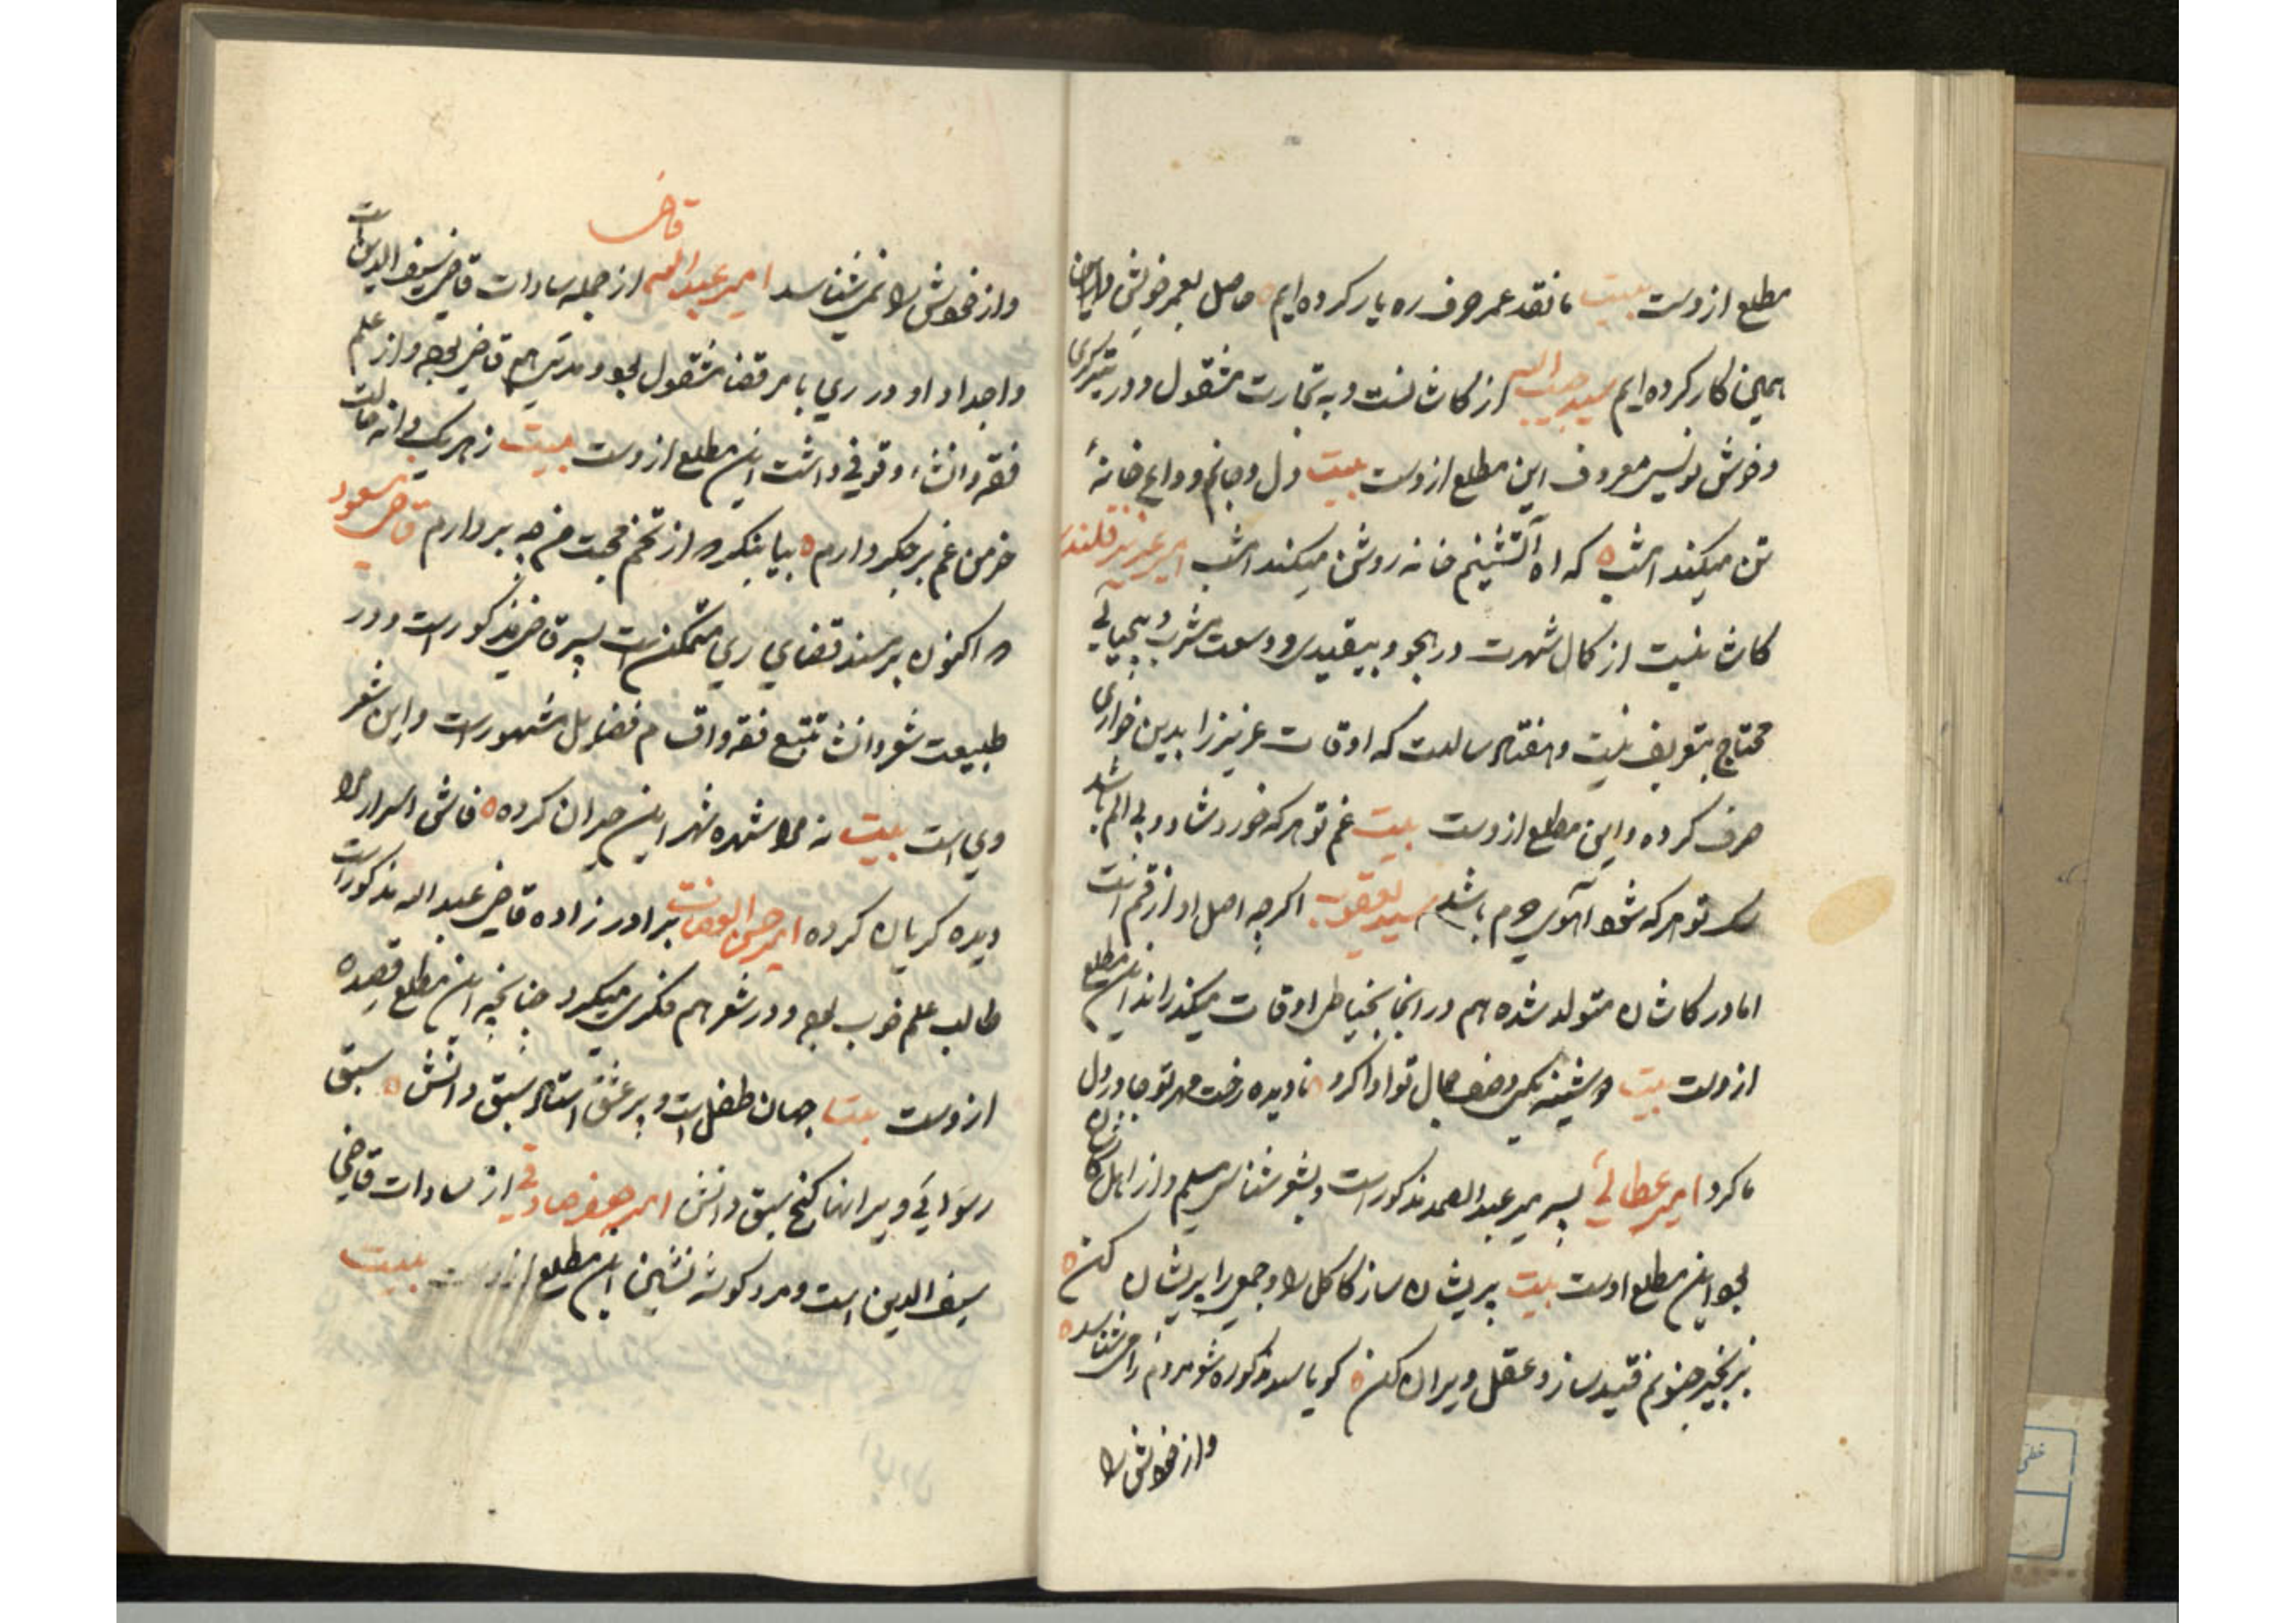 مطلع ازوست بیت ما نقد عمر صرف ره یار کرده ایم حاصل بعمر خویش
همین کار کرده ایم سید حبیب الله از کاشانست و به تجارت مشغول و در
و خوش نویسی معروف این مطلع ازوست بیت دل و جانم وداع خانهٔ
تن میکند امشب که اه آتشینم خانه روشن میکند امشب امیر عزیز قلندر
کاشانیست از کمال شهرت در هجو و بیقیدی و وسعت مشرب و بیحیائی
محتاج بتعریف نیست و هفتاد سالست که اوقات عزیز را بدین خواری
صرف کرده و این مطلع ازوست بیت غم تو هر که خورد شاد و بی الم باشد
سک تو هر که شود آهوی حرم باشد سید یعقوب اکرچه اصل او از قم است
اما در کاشان متولد شده هم در انجا بخیاطی اوقات میکذراند این مطلع
ازوست بیت وصف جمال تو ادا کرد نادیده رخت مهر تو جا در دل
ما کرد امیر عطائی پسر میر عبدالصمد مذکور است و بشعر شناسی مسلم و از اهل کاشان
بود این مطلع اوست بیت پریشان ساز کاکل را و جمعی را پریشان کن
بزنجیر جنونم قید ساز و عقل ویران کن کویا سید مذکور مردم را می شناسد
و از خودش را
قاضی
و از خودش را نمی شناسد امیر عبدالله از جمله سادات قاضی سیف الدین است
و اجداد او در ری با مر قضا مشقول بود و مدتی هم قاضی بود و از علم
فقه و انشاء وقوفی داشت این مطلع ازوست بیت ز هر یک دانه خالت
خرمن غم بر جکر دارم بیا بنکر که از تخم محبت من چه بر دارم قاضی مسعود
که اکنون بر مسند قضای ری متمکن است پسر قاضی مذکور است و در
طبیعت شعر و انشا و تتبع فقه و اقسام فضایل مشهور است و این شعر
وی است بیت نه مرا شهره شهر این کرده فاش اسرار مرا
دیده کریان کرده امیر برادر زاده قاضی عبد اله مذکور است
طالب علم خوب بود و در شعر هم فکری میکرد چنانچه این مطلع قصیده
ازوست بیت جهان طفل است و پیر عشق استاد سبق دانش سبق
رسوائی و ویرانها کنج سبق دانش امیر جعفر صادقی از سادات قاضی
سیف الدین است و مرد کوشه نشین این مطلع ازوست بیت
خطی